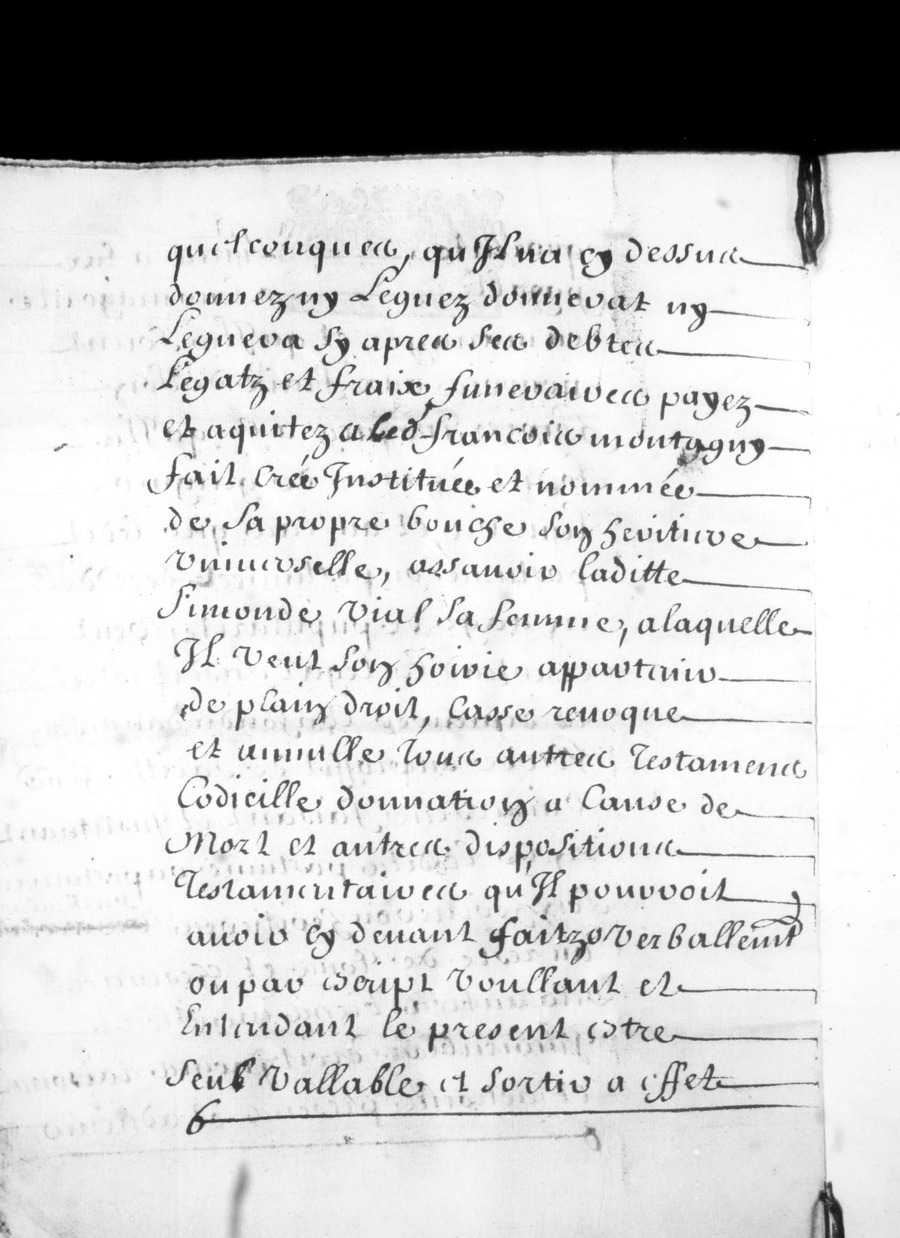 quelconques, qu'Il n'a cy dessus
donnez ny Leguez donnerat ny
Leguera sy apres ses debtes
Legatz et fraix funeraires payez
et aquitez a led francois montagny
fait créé Instituée et nommée
de sa propre bouche son heritiere
Vniuerselle, assauoir laditte
Simonde Vial sa femme, a laquelle
Il veut son hoirie appartenir
de plain droit, Casse reuoque
et annulle tous autres testamens
Codicille donnation a Cause de
Mort et autres dispositions
testamentaires qu'Il pouvoit
auoir cy deuant faitz verballemt
ou par escript voullant et
Entendant le present estre
seul vallable et sortir a effet
6